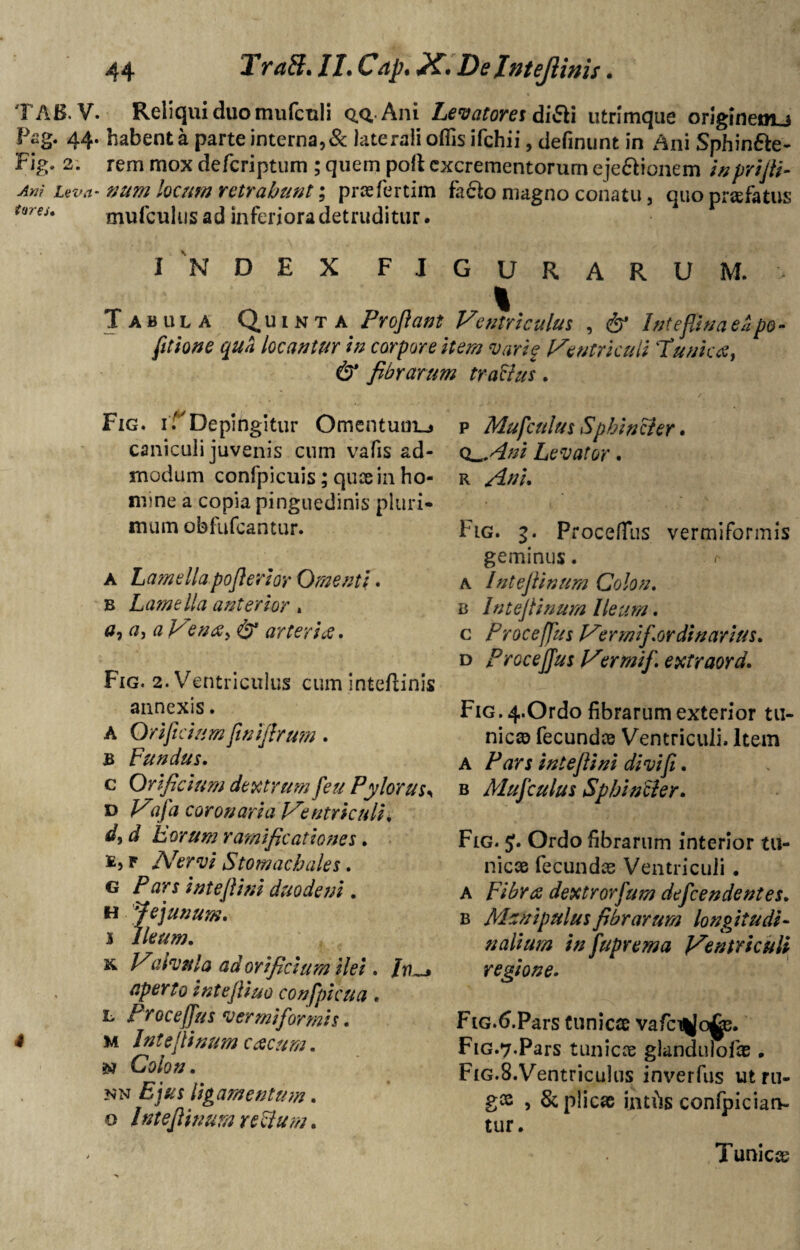 44 Tract. II. Cap. X. De Inteſtinis.
TAB. V. Reliqui duo muſculi Q.Q. Ani Levatores dicti utrimque originem
Pag. 44. habent à parte interna, & laterali oſſis iſchii, deſinunt in Ani Sphincte-
Fig. 2. rem mox deſcriptum; quem poſt excrementorum ejectionem in priſti-
Ani Leva- num locum retrahunt; præſertim facto magno conatu, quo præfatus
tores. muſculus ad inferiora detruditur.
INDEX FIGURARUM.
TABULA QUINTA Proſtant Ventriculus, & Inteſtina eà po-
ſitione quà locantur in corpore item varię Ventriculi Tunicæ,
& fibrarum tractus.
FIG. 1. Depingitur Omentum
caniculi juvenis cum vaſis ad-
modum conſpicuis; quæ in ho-
mine a copia pinguedinis pluri-
mum obfuſcantur.
A Lamella poſterior Omenti.
B Lamella anterior.
a, a, a Venæ, & arteriæ.
FIG. 2. Ventriculus cum inteſtinis
annexis.
A Orificium ſiniſtrum.
B Fundus.
C Orificium dextrum ſeu Pylorus.
D Vaſa coronaria Ventriculi.
d, d Eorum ramificationes.
E, F Nervi Stomachales.
G Pars inteſtini duodeni.
H Jejunum.
I Ileum.
K Valvula ad orificium ilei. In
aperto inteſtino conſpicua.
L Proceſſus vermiformis.
M Inteſtinum cæcum.
N Colon.
NN Ejus ligamentum.
O Inteſtinum rectum.
P Muſculus Sphincter.
Q. Ani Levator.
R Ani.
FIG. 3. Proceſſus vermiformis
geminus.
A Inteſtinum Colon.
B Inteſtinum Ileum.
C Proceſſus Vermiſ. ordinarius.
D Proceſſus Vermiſ. extraord.
FIG. 4. Ordo fibrarum exterior tu-
nicæ ſecundæ Ventriculi. Item
A Pars inteſtini diviſi.
B Muſculus Sphincter.
FIG. 5. Ordo fibrarum interior tu-
nicæ ſecundæ Ventriculi.
A Fibræ dextrorſum deſcendentes.
B Manipulus fibrarum longitudi-
nalium in ſuprema Ventriculi
regione.
FIG. 6. Pars tunicæ
FIG. 7. Pars tunicæ glanduloſæ.
FIG. 8. Ventriculus inverſus ut ru-
gæ, & plicæ intùs conſpician-
tur.
Tunicæ